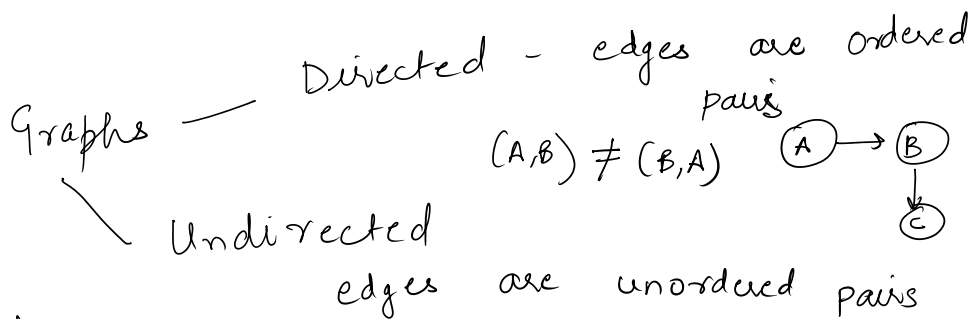 Graphs — Directed - edges are ordered
pairs
(A,B) ≠ (B,A) A → B
C
Undirected
edges are unordered pairs